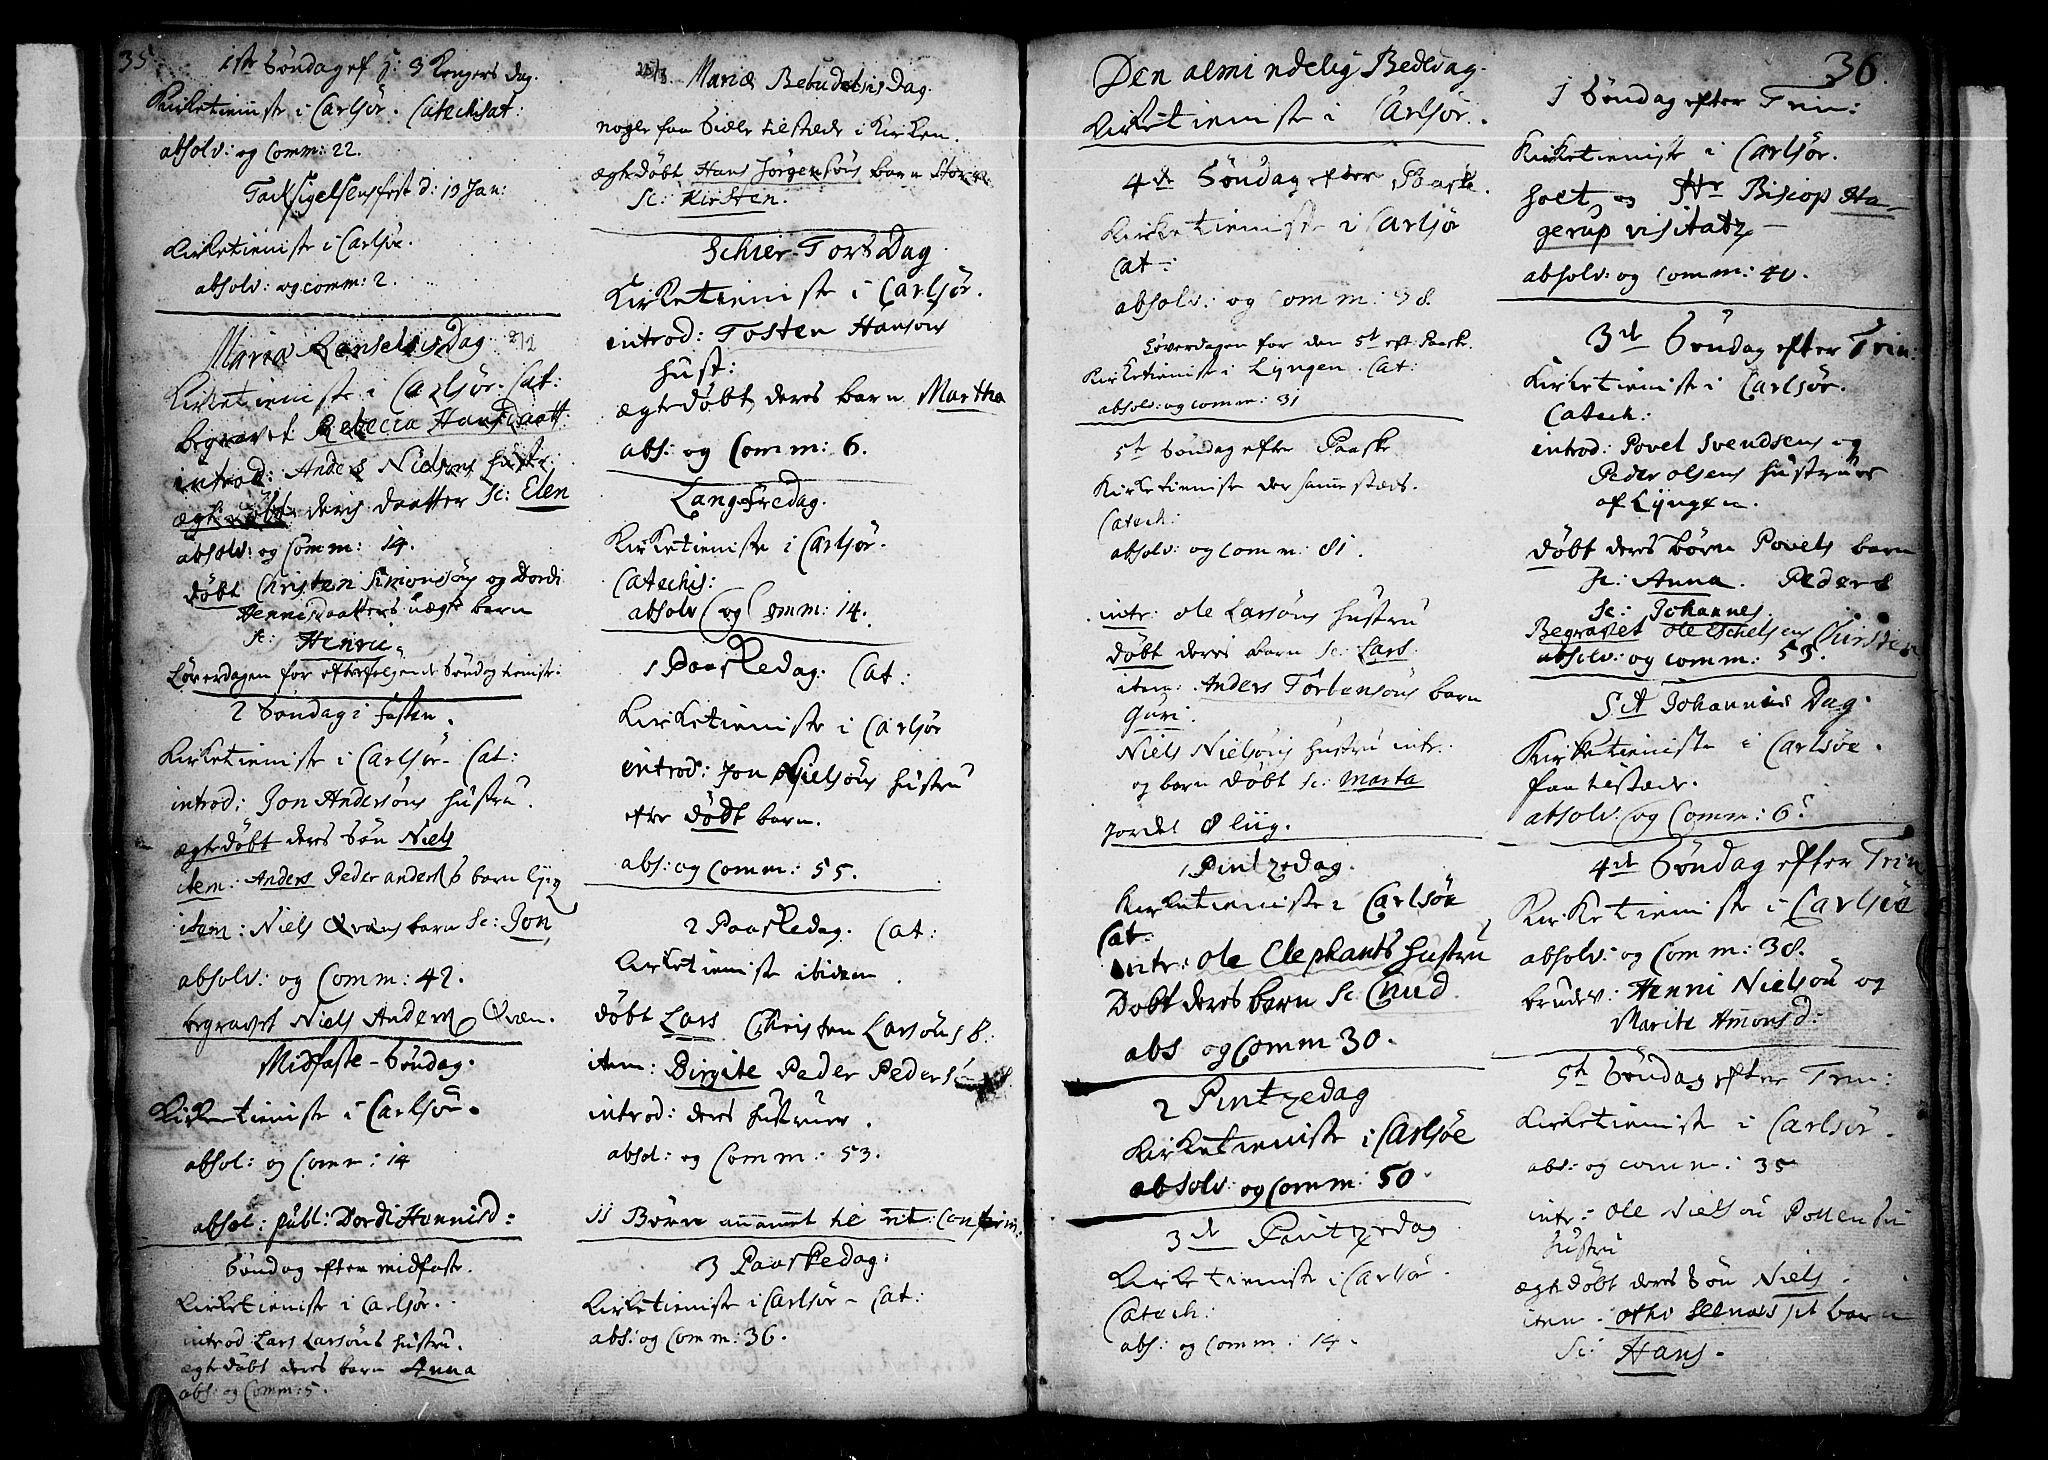 35
1ste Söndag ef h: 3 Kongers dag.
Kirketieniste i Carlsör. Catechisat:
absolv: og Comm: 22.
Tacksigelsens fest d: 19 Jan:
Kirketieniste i Carlsöe.
absolv: og comm: 2.
Mariæ Renselsis Dag 2/2
Kirketieniste i Carlsör. Cat:
begravet Rebecca Hansdaatt:
introd: Anders Nielsöns hustr:
ægte döbt deris daatter Sc: Elen
absolv: og Comm: 14.
döbt Christen Simonssöns og Dordi
Hennisdaatters uægte barn
Sc: Henric.
Löverdagen for efterfölgende Söndag tienist:
2 Söndag i fasten.
Kirketieniste i Carlsör. Cat:
introd: Jon Andersöns hustru.
ægte döbt deres Sön Niels
item: Anders Peder anders b barn
item: Niels Qvæns barn Sc: Jon
absolv: og Comm: 42.
begravet Niels Anders Qvæn.
Midfaste-Söndag.
Kirketieniste i Carlsör.
absol: og Comm: 14
absol: publ: Dordi Hennisd:
Söndag efter midfaste.
Kirketieniste i Carlsör.
introd: Lars Larsöns hustru.
ægte döbt deres barn Anna
abs: og Comm: 5.
25/3 Mariæ Bebudelsis Dag.
nogle faa Siele tilstæde i Kirken.
ægte döbt Hans Jörgensöns barn
Sc: Kirsten.
Schier-Tors Dag
Kirketieniste i Carlsör.
introd: Tosten Hansöns
hust:
ægte döbt deres barn Martha
abs: og Comm: 6.
Langfredag.
Kirketieniste i Carlsör.
Catechis:
absolv og Comm: 14.
1 Paaskedag. Cat:
Kirketieniste i Carlsör
introd: Jon Nielsöns hustru
efter dödt barn.
abs: og Comm: 55.
2 Paaskedag. Cat:
Kirketieniste ibidem
döbt Lars Christen Larsöns b.
item: Birgite Peder Pedersöns
introd: deres hustruer.
absol: og Comm: 53.
11 Börn annammet til at: confirm:
3 Paaskedag:
Kirketieniste i Carlsör - Cat:
abs: og Comm: 36.
Den almindelig Bededag.
Kirketieniste i Carlsör.
4de Söndag efter Paaske.
Kirketieniste i Carlsör
Cat:
absolv: og Comm: 38.
Löverdagen for den 5te eft Paask.
Kirketieniste i Lyngen. Cat:
absolv: og comm: 31
5te Söndag efter Paaske
Kirketieniste der samme stæds.
Catech:
absolv: og Comm: 81.
intr: Ole Larsöns hustru
döbt deres barn Sc: Lars.
item: Anders Torbensöns barn
Guri.
Niels Nielsöns hustru intr:
og barn döbt Sc: Marta
Jordet 8 liig.
1 Pintzedag.
Kirketieniste i Carlsöe
Cat.
intr: Ole Elephants hustru
Döbt deres barn Sc: Cnud.
abs og Comm 30.
2 Pintzedag
Kirketieniste i Carlsöe
absolv: og Comm: 50.
3de Pintzedag
Kirketieniste i Carlsör.
Catech:
abs: og Comm: 14.
36
1 Söndag efter Trin:
Kirketieniste i Carlsör.
holt, og Hr Biscop Ha-
gerup visitatz
absolv: og comm: 40.
3de Söndag efter Trin:
Kirketieniste i Carlsör.
Catech:
introd: Povel Svendsens og
Peder Olsens hustruer
af Lyngen.
döbt deres börn Povels barn
Sc: Anna. Peders
Sc: Johannes.
Begravet Ole
absolv: og comm: 53.
Sct Johannis Dag.
Kirketieniste i Carlsöe.
faa tilstæde.
absolv og Comm: 6.
4de Söndag efter Trin
Kirketieniste i Carlsöe
absolv: og Comm: 38.
brudev: Henni Nielsön og
Marite Amonsd:
5te Söndag efter Trin:
Kirketieniste i Carlsör.
abs: og comm: 35
intr: Ole Nielsön
hustru
ægte döbt deres Sön Niels.
item. barn
Sc: Hans.